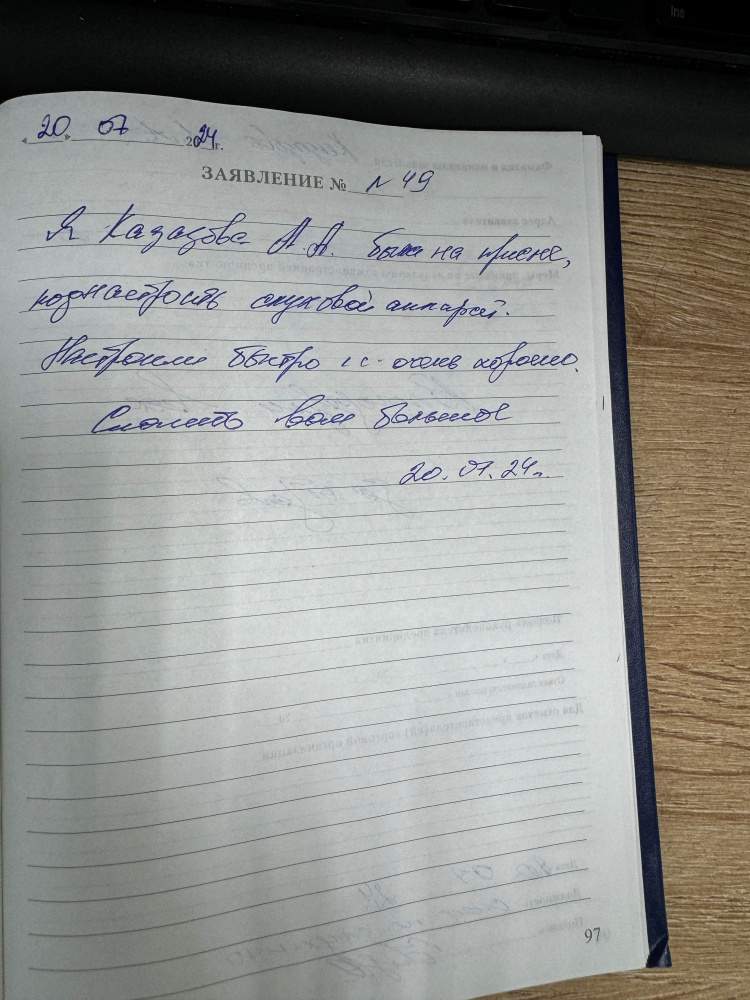 20 07 2024г.
ЗАЯВЛЕНИЕ № N 49
Я Казацова А.А. была на приеме,
поднастроить слуховой аппарат.
Настроили быстро и очень хорошо.
Спасибо вам большое
20.07.24г.
97